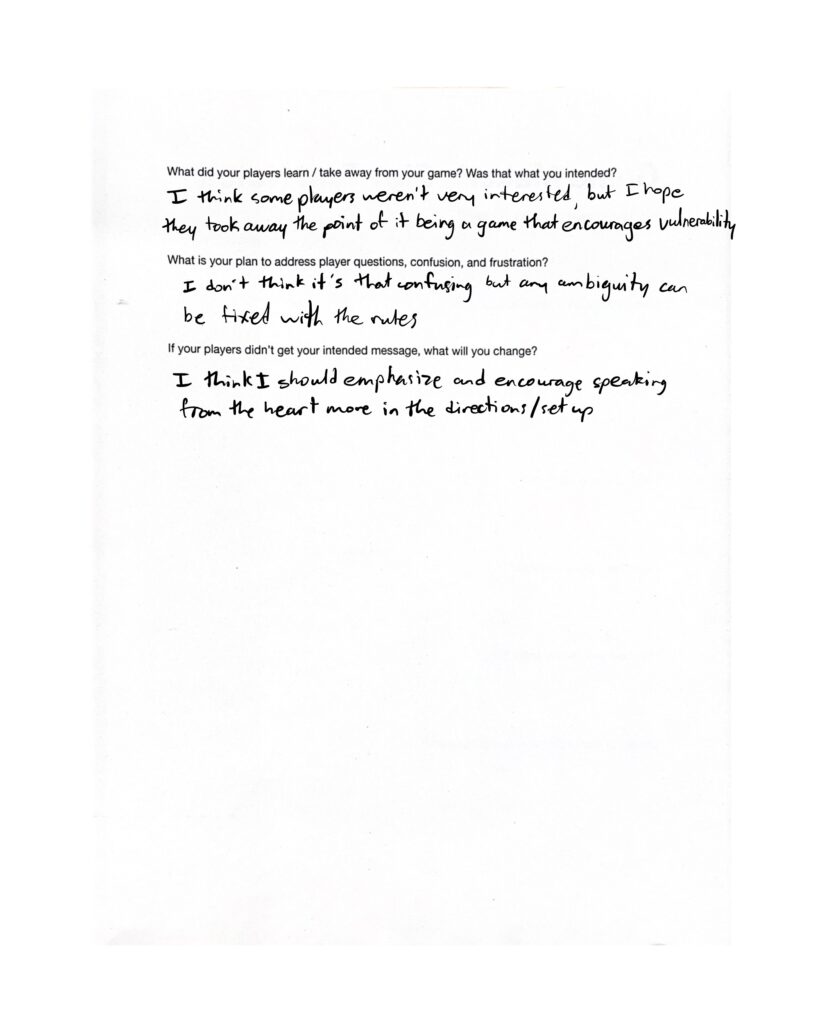 What did your players learn / take away from your game? Was that what you intended?
I think some players weren't very interested, but I hope
they took away the point of it being a game that encourages vulnerability
What is your plan to address player questions, confusion, and frustration?
I don't think it's that confusing but any ambiguity can
be fixed with the rules
If your players didn't get your intended message, what will you change?
I think I should emphasize and encourage speaking
from the heart more in the directions/set up